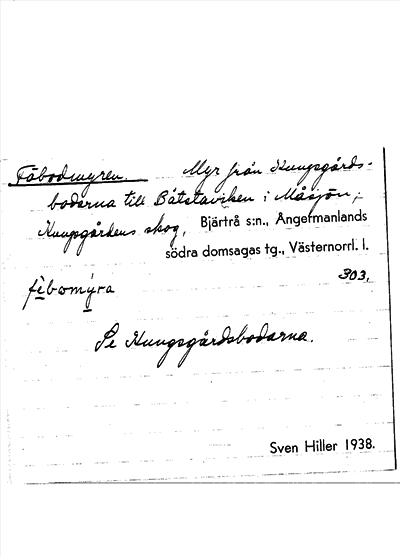 Fäbodmyren. Myr från Kungsgårds-
bodarna till Båtstaviken i Måsjön,
Kungsgårdens skog, Bjärtrå s:n., Ångermanlands
södra domsagas tg., Västernorrl. l.
303.
fèbomýra
Se Kungsgårdsbodarna.
Sven Hiller 1938.